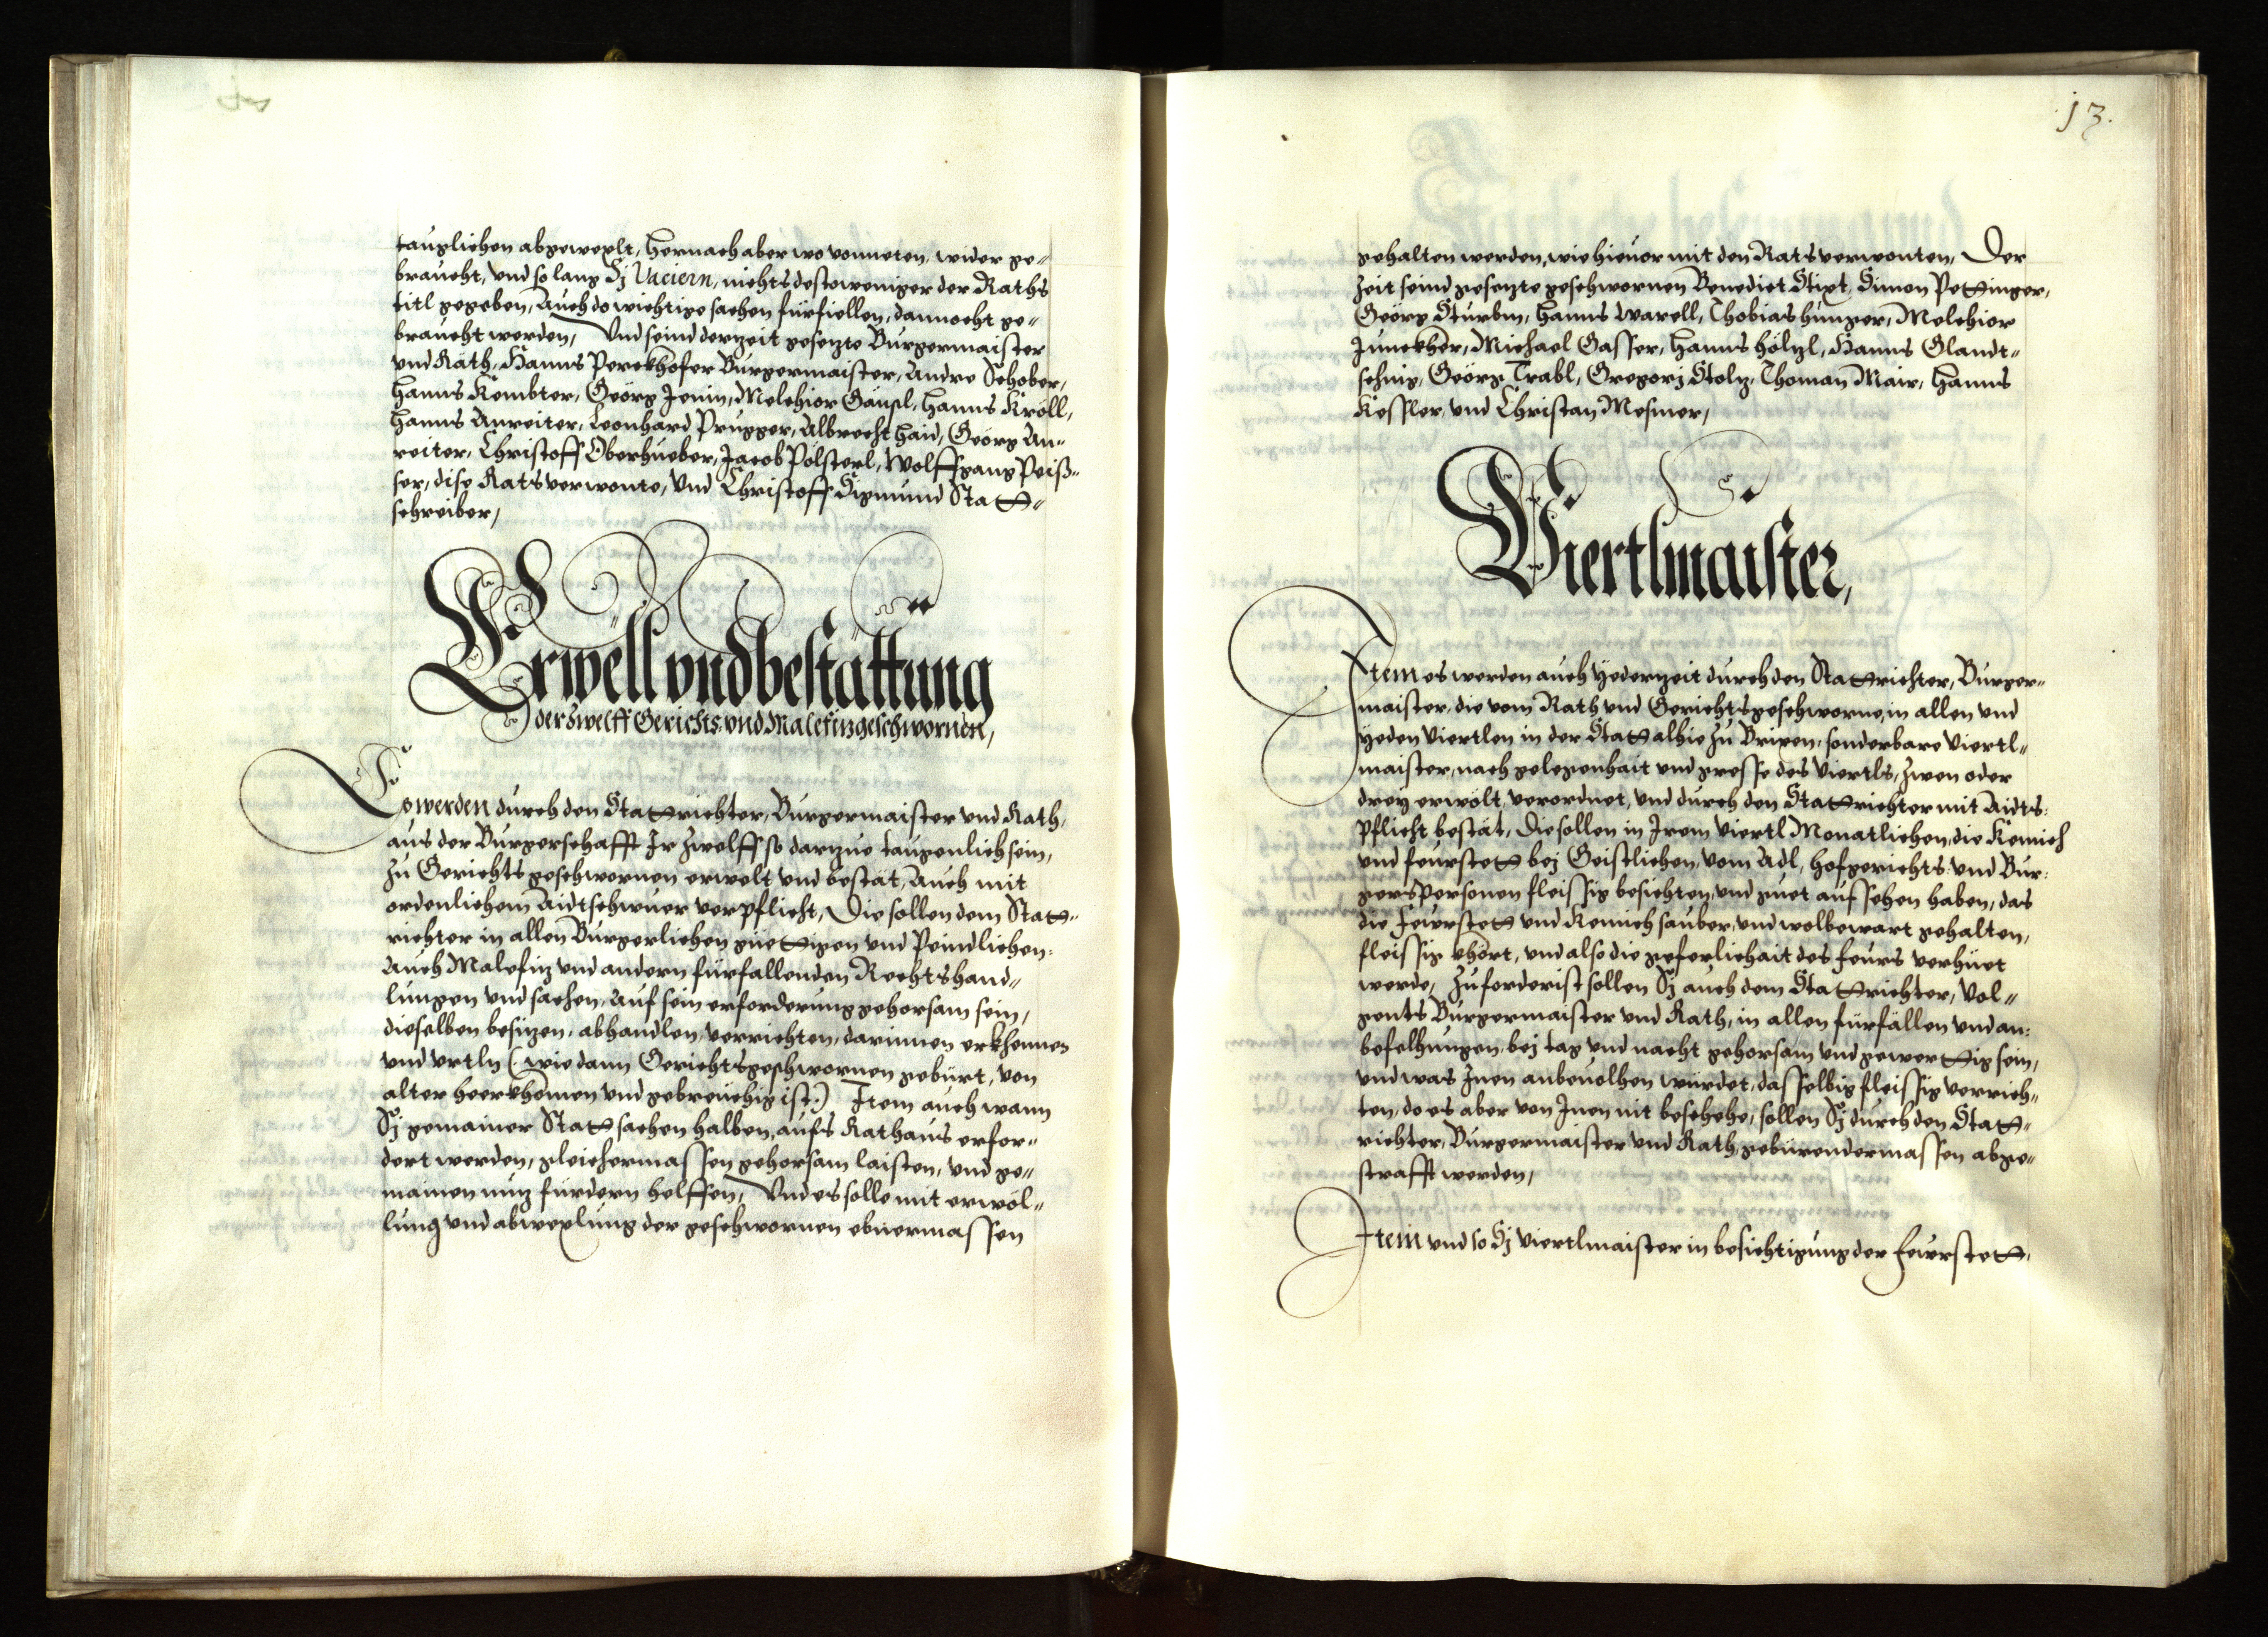 tauglichen abgewexlt, hernach aber wo vonneten, wider ge„
braucht, vnd so lang Sj Vaciern, nichts destoweniger der Raths
titl gegeben, Auch do wichtige sachen fürfiellen, dannocht ge„
braucht werden, Vnd seind derzeit gesezte Burgermaister
vnd Räth, Hanns Perckhofer Burgermaister, Andre Schober,
Hanns Kembter, Geörg Jenin, Melchior Gäusl, Hanns Kröll,
Hanns Anreiter, Leonhard Prugger, Albrecht Haid, Geörg An„
reiter, Christoff Oberhueber, Jacob Pölsterl, Wolffgang Peiß„
ser, dise Ratsverwonte, Vnd Christoff Sigmund Statt„
schreiber,
Erwell vnd bestättung
der zwelff Gerichts: vnd Malefizgeschwornen,
Es werden durch den Stattrichter, Burgermaister vnd Rath,
aus der Burgerschafft Jr zwelff so darzue taugenlich sein,
zu Gerichtsgeschwornen erwelt vnd bestät, Auch mit
ordenlichem Aidtschwuer verpflicht, Die sollen dem Statt„
richter in allen Burgerlichen güettigen vnd Peindlichen:
Auch Malefiz vnd andern fürfallenden Rechtshand„
lungen vnd sachen, Auf sein erforderung gehorsam sein,
dieselben besizen, abhandlen, verrichten, darinnen erkhennen
vnd vrtln (: wie dann Gerichtsgeschwornen gebürt, von
alter heerkhomen vnd gebreuchig ist:) Jtem auch wann
Sj gemainer Statt sachen halben, aufs Rathaus erfor„
dert werden, gleichermassen gehorsam laisten, vnd ge„
mainen nuz fürdern helffen, Vnd es solle mit erwöl„
lung vnd abwexlung der geschwornen ebnermassen
13.
gehalten werden, wie hieuor mit den Ratsverwonten, Der
zeit seind gesezte geschwornen Benedict Stixt, Simon Pettinger,
Geörg Sturbm, Hanns Warell, Thobias Hunger, Melchior
Junckher, Michael Gasser, Hanns Hölzl, Hanns Glandt„
schnig, Geörg Trabl, Gregorj Stolz, Thoman Mair, Hanns
Kessler, vnd Christan Mesmer,
Viertlmaister,
Jtem es werden auch yederzeit durch den Stattrichter, Burger„
maister, die vom Rath vnd Gerichtsgeschworne, in allen vnd
yeden Viertlen in der Statt alhie zu Brixen, sonderbare Viertl„
maister, nach gelegenhait vnd grosse des Viertls, zwen oder
drey erwölt, verordnet, vnd durch den Stattrichter mit Aidts:
pflicht bestät, Die sollen in Jrem Viertl Monatlichen, die Kemich
vnd feurstett bej Geistlichen, vom Adl, Hofgerichts: vnd Bur:
gerspersonen fleissig besichten, vnd guet aufsehen haben, das
die Feurstett vnd Kemich sauber, vnd wolbewart gehalten,
fleissig khört, vnd also die geferlichait des feurs verhüet
werde, Zuforderist sollen Sj auch dem Stattrichter, Vol„
gents Burgermaister vnd Rath, in allen fürfällen vnd an:
befelhungen, bej tag vnd nacht gehorsam vnd gewerttig sein,
vnd was Jnen anbeuolhen würdet, dasselbig fleissig verrich„
ten, do es aber von Jnen nit beschehe, sollen Sj durch den Statt„
richter, Burgermaister vnd Rath, gebürendermassen abge„
strafft werden,
Jtem vnd so Sj Viertlmaister in besichtigung der Feurstett,